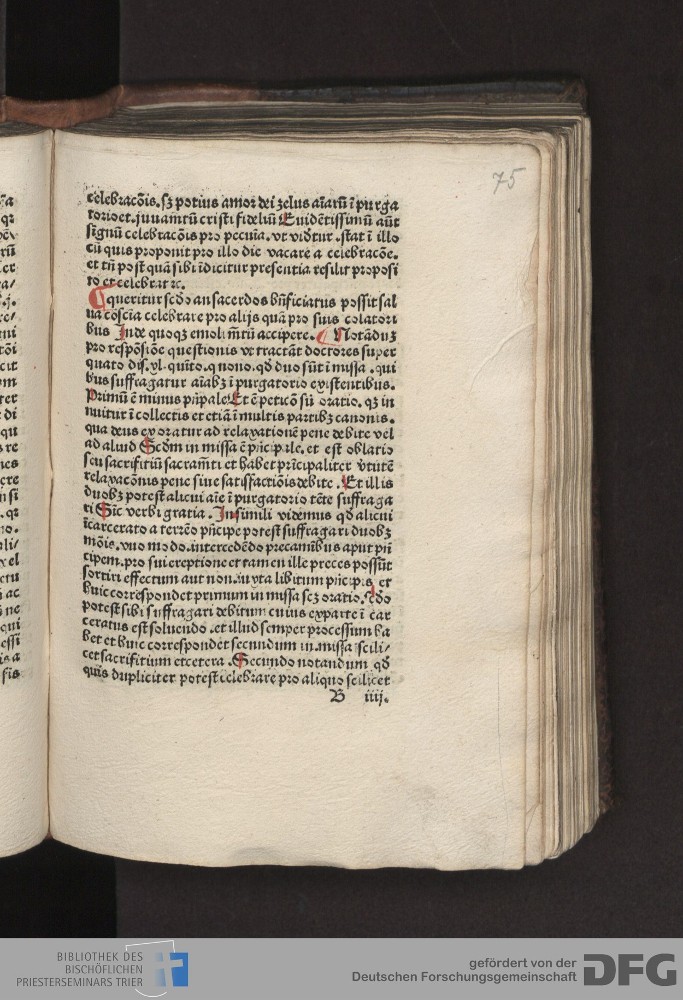 75
celebracōis. sȝ potius amor dei zelus aīarū ī purga
torio et. juuamtū cristi fideliū Euidētissimū aūt
signū celebracōis pro pecuīa. vt vidr̄tur. stat ī illo
cū quis proponit pro illo die vacare a celebracōe.
et tn̄ post quā sibi īdicitur presentia resilit proposi
to et celebrat ꝛc.
¶ queritur scd̓o an sacerdos bn̄ficiatus possit sal
ua cōscīa celebrare pro alijs quā pro suis colatori
bus Inde quoqȝ emolim̄tū accipere. ¶ Notādūȝ
pro respōsiōe questionis vt tractāt doctores super
quarto dis. xl. quīto. q nono. qd̓ duo sūt ī missa. qui
bus suffragatur aīabȝ ī purgatorio existentibus.
Primū ē minus prīpale Et ē peticō siū oratio. qȝ in
nuitur ī collectis et etiā ī multis partibȝ canonis.
qua deus exoratur ad relaxationē pene debite vel
ad aliud Scd̓m in missa ē pricip le. et est oblatio
seu sacrifitiū sacram̄ti et habet prīcipaliter v̓tutē
relaxacōnis pene siue satisfactiōis debite. Et illis
duobȝ potest alicui aīe ī purgatorio tēte suffraga
ri Sic verbi gratia. In simili videmus qd̓ alicui
īcarcerato a terrēo prīcipe potest suffragari duobȝ
mōis. vno modo. intercedēdo precamībus aput prī
cipem. pro sui ereptione et tamen ille preces possūt
sortiri effectum aut non. iuxta libitum prīcipis et
huic correspondet primum in missa scȝ oratio. Scd̓o
potest sibi suffragari debitum cuius exparte ī car
ceratus est soluendo. et illud semper processium ha
bet et huic correspondet secundum in missa scili/
cet sacrifitium etcetera. Secundo notandum qd̓
quis dupliciter potest celebrare pro aliquo scilicet
B iiij.
BIBLIOTHEK DES
BISCHÖFLICHEN
PRIESTERSEMINARS TRIER
gefördert von der
Deutschen Forschungsgemeinschaft
DFG